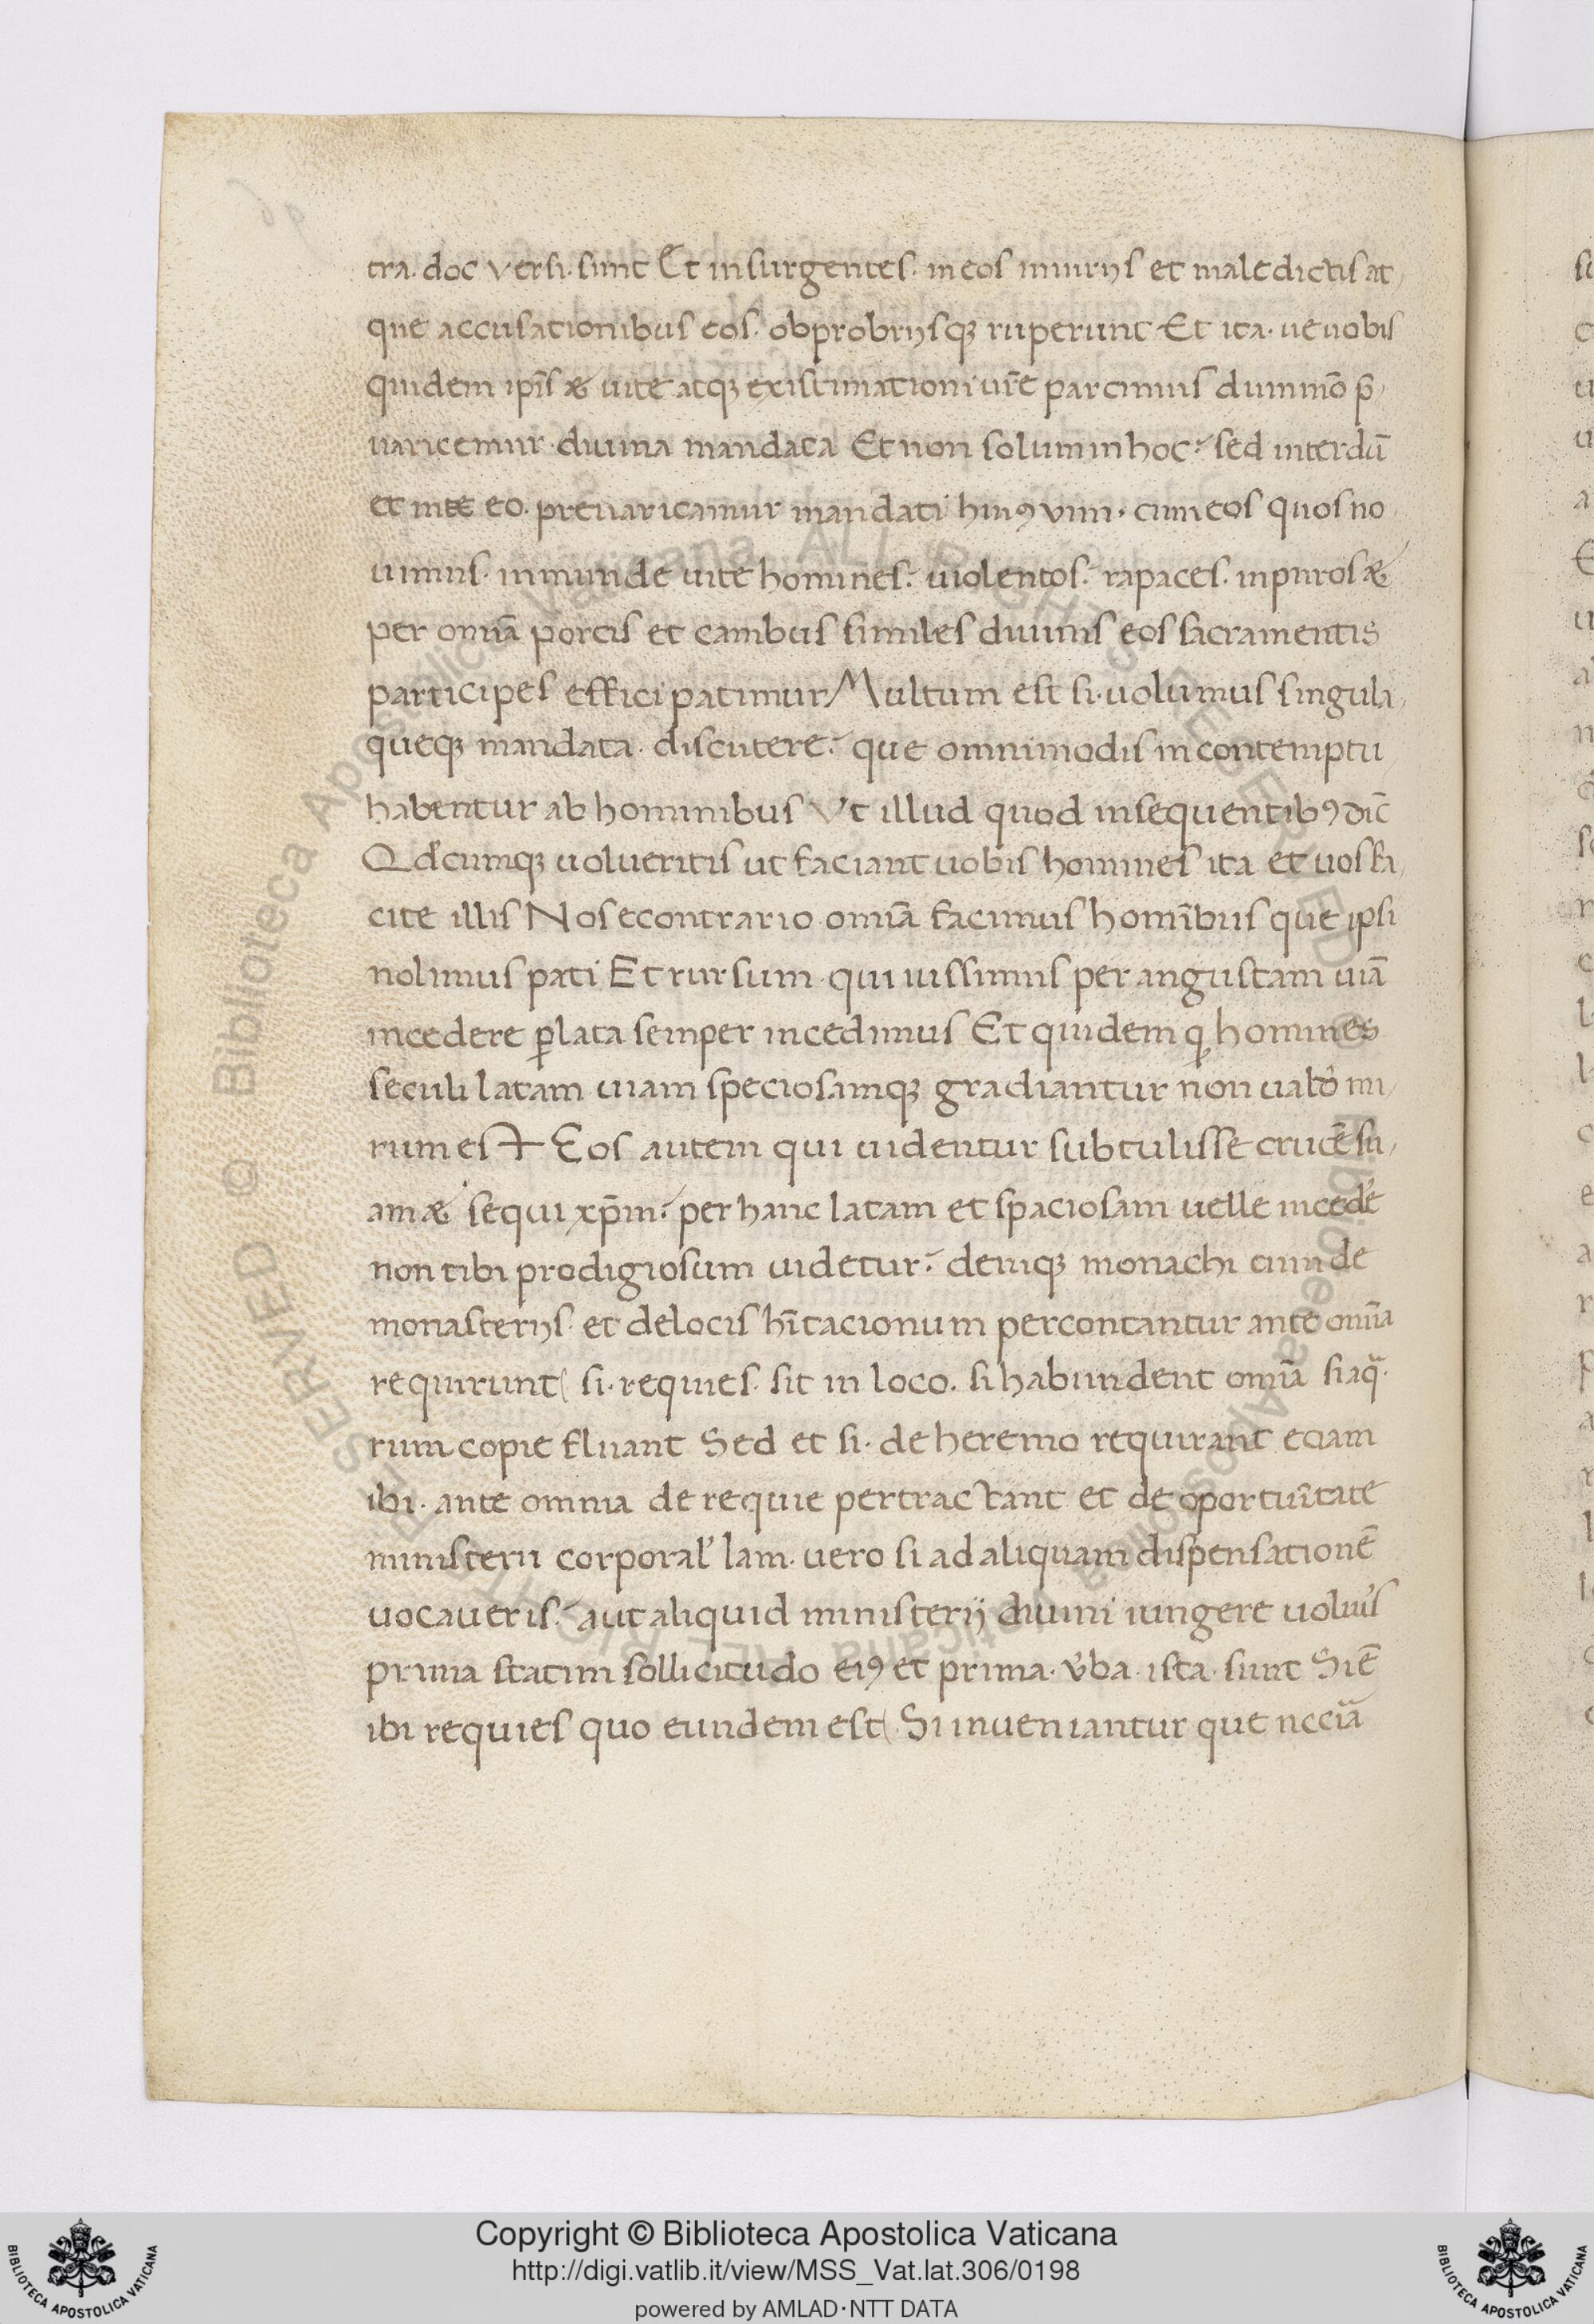 tra. doc versi. sunt Et insurgentes. in eos iniurijs et maledictis at
que accusationibus eos. obprobrijsq; ruperunt Et ita. ue uobis
quidem ip̄is æ uite atq; existimationi ur̄e parcimus dummō p̄
uaricemur. diuina mandata Et non solum in hoc. sed interdū
et in te eo. preuaricamur mandati huiꝰ vim. cum eos quos no
uimus. inmunde uite homines. uiolentos. rapaces. inpuros æ
per omīa porcis et canibus similes diuinis eos sacramentis
participes effici patimur Multum est si. uolumus singula
queq; mandata. discutere. que omnimodis in contemptu
habentur ab hominibus Vt illud quod in sequentibꝰ dic̄
Qd'cumq; uolueritis ut faciant uobis homines ita et uos fa
cite illis Nos econtrario omīa facimus homībus que ipsi
nolimus pati Et rursum qui iussimus per angustam uiā
incedere ꝑ lata semper incedimus Et quidem q homines
seculi latam uiam speciosamq; gradiantur non ualḋ mi
rum est Eos autem qui uidentur subtulisse crucē su
am æ sequi xp̄m. per hanc latam et spaciosam uelle incedē
non tibi prodigiosum uidetur. deniq; monachi cum de
monasterijs et de locis hītacionum percontantur ante omīa
requirunt si. requies. sit in loco. si habundent omīa si aq̄.
rum copie fluant Sed et si. de heremo requirant eciam
ibi. ante omnia de requie pertractant et de oportuītate
ministerii corporal' Iam. uero si ad aliquam dispensationē
uocaueris. aut aliquid ministerij diuini iungere uolūis
prima statim sollicitudo eiꝰ et prima. v̄ba. ista. sunt Si ē
ibi requies quo eundem est Si inueniantur que nccīa
Copyright © Biblioteca Apostolica Vaticana
http://digi.vatlib.it/view/MSS_Vat.lat.306/0198
powered by AMLAD·NTT DATA